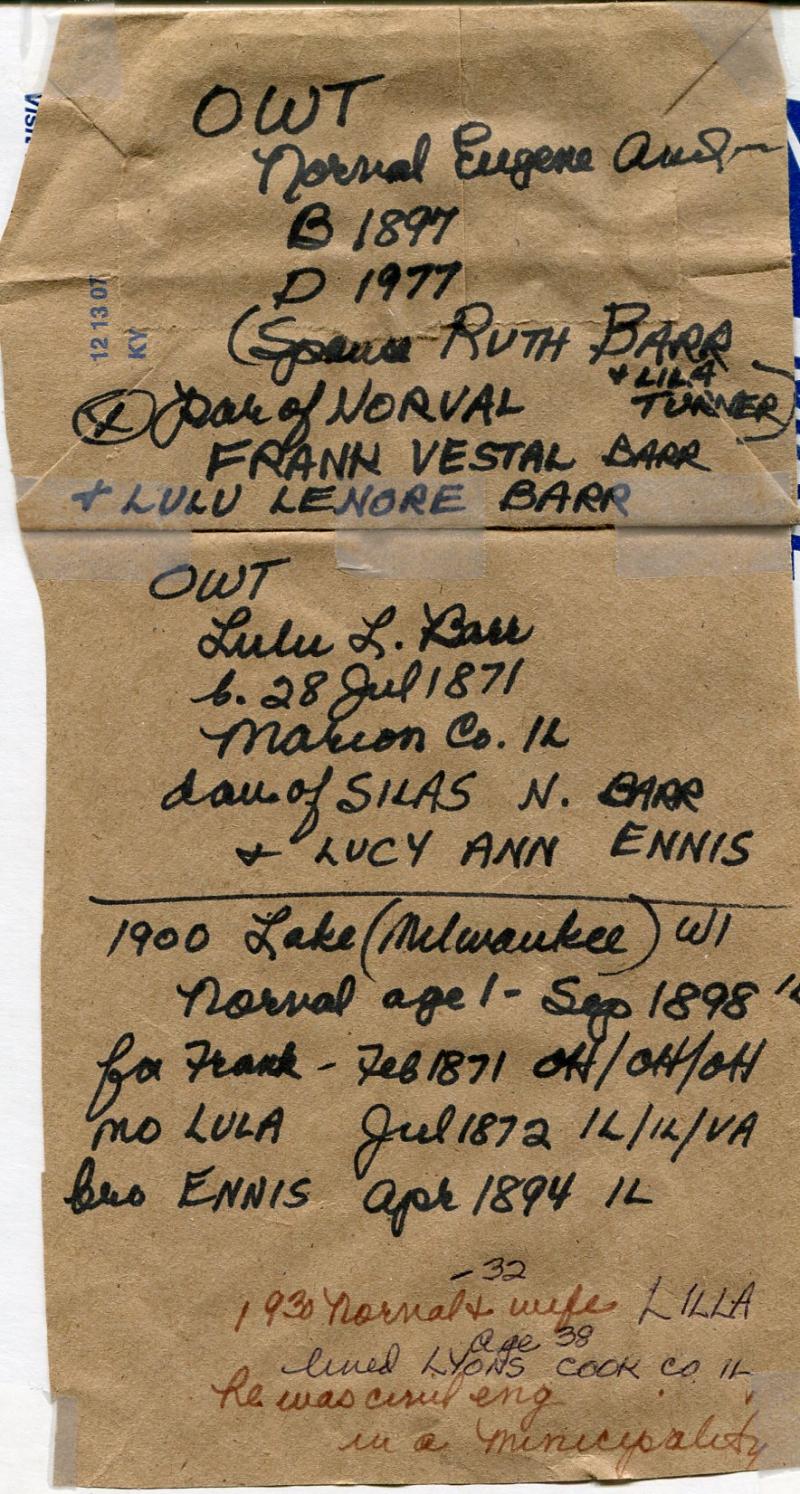 VISI
OWT
Norval Eugene
B 1897
D 1977
12 13 07
KY
(Spouse RUTH BARR
+ LILA
TURNER)
(X) par of NORVAL
FRANK VESTAL BARR
+ LULU LENORE BARR
OWT
Lulu L. Barr
b. 28 Jul 1871
Marion Co. IL
dau of SILAS N. BARR
+ LUCY ANN ENNIS
1900 Lake (Milwaukee) WI
Norval age 1 - Sep 1898
fa Frank - Feb 1871 OH/OH/OH
mo LULA Jul 1872 IL/IL/VA
bro ENNIS Apr 1894 IL
- 32
1930 Norval + wife LILLA
age 38
lived LYONS COOK CO IL
he was civil eng
in a municipality